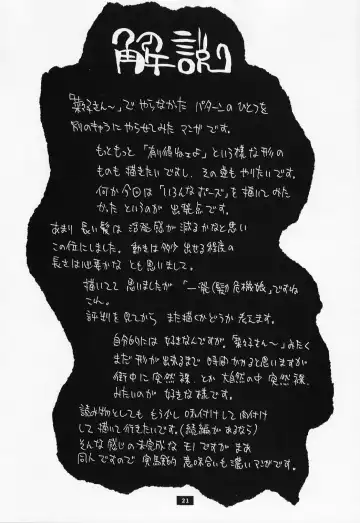 解説
「菜々子さん〜」で やらなかった パターンの ひとつを
別のキャラに やらせてみた マンガです。
もっともっと 「有り得ねェよ」という様な 形の
ものも 描きたいですし、その 逆も やりたいです。
何か今回は 「いろんなポーズ」を 描いて みた
かった というのが 出発点です。
あまり 長い髪は 活発感が 減るかなと思い
この位にしました。動きは 多少 出せる程度の
長さは 必要かな とも 思いまして。
描いてて 思いましたが 「一発(髪)危機娘」ですね
これ。
評判を 見てから また 描くかどうか 考えます。
自分的には 好きなんですが、「菜々子さん〜」みたく
まだ 形が 出来るまで 時間かかると思いますが
街中に 突然 裸、とか 大自然の中 突然 裸、
みたいのが 好きな様です。
読み物としても もう少し 味付けして 肉付け
して 描いて行きたいです。(続編があるなら)
そんな 感じの 未完成な モノですが まあ
同人ですので 実験的 意味合いも 濃い マンガです。
21